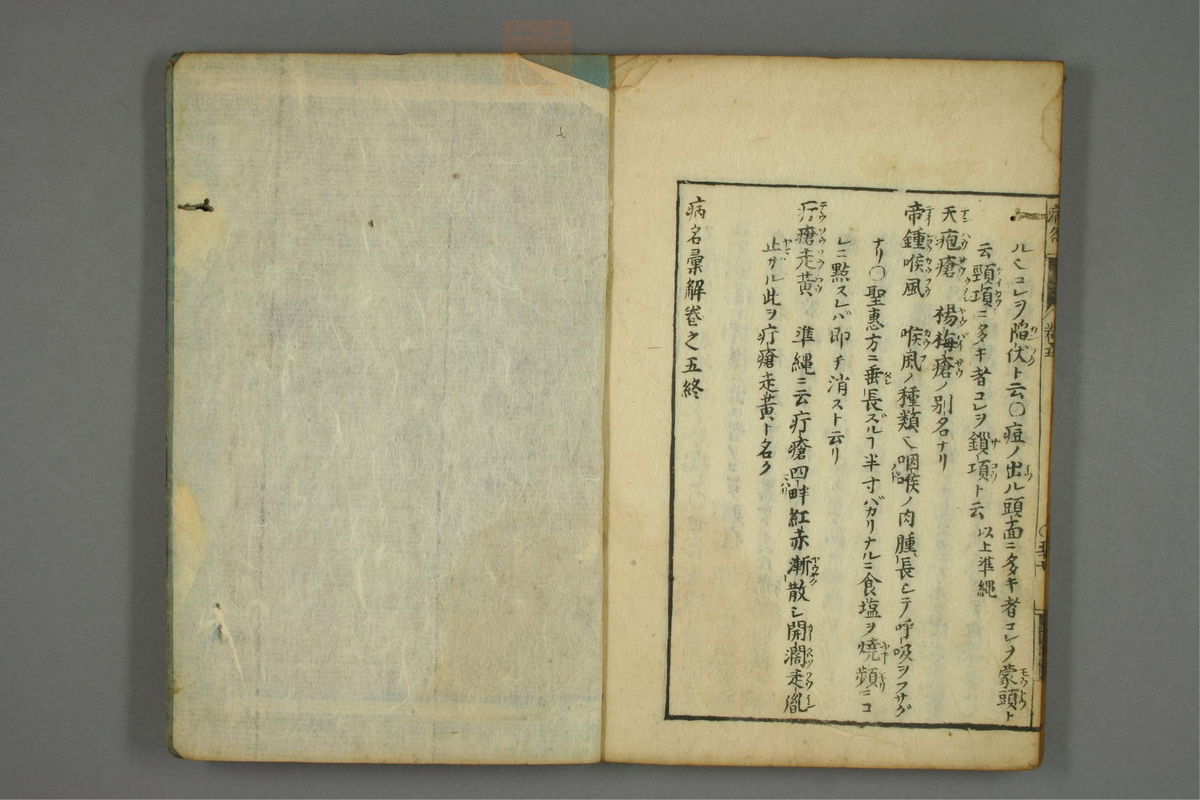 ル也コレヲ陥伏ト云〇痘ノ出ル頭面ニ多キ者コレヲ蒙頭ト
云頸項ニ多キ者コレヲ鎖項ト云 以上準縄
天疱瘡 楊梅瘡ノ別名ナリ
帝鍾喉風 喉風ノ種類也咽喉ノ肉腫長シテ呼吸ヲフサグ
ナリ〇聖惠方ニ垂長ズルヿ半寸バカリナルニ食塩ヲ燒頻ニコ
レニ點スレバ即チ消スト云リ
疔瘡走黄 準縄ニ云疔瘡四畔紅赤漸散シ開濶走胤
止ザル此ヲ疔瘡走黄ト名ク
病名彙解巻之五終